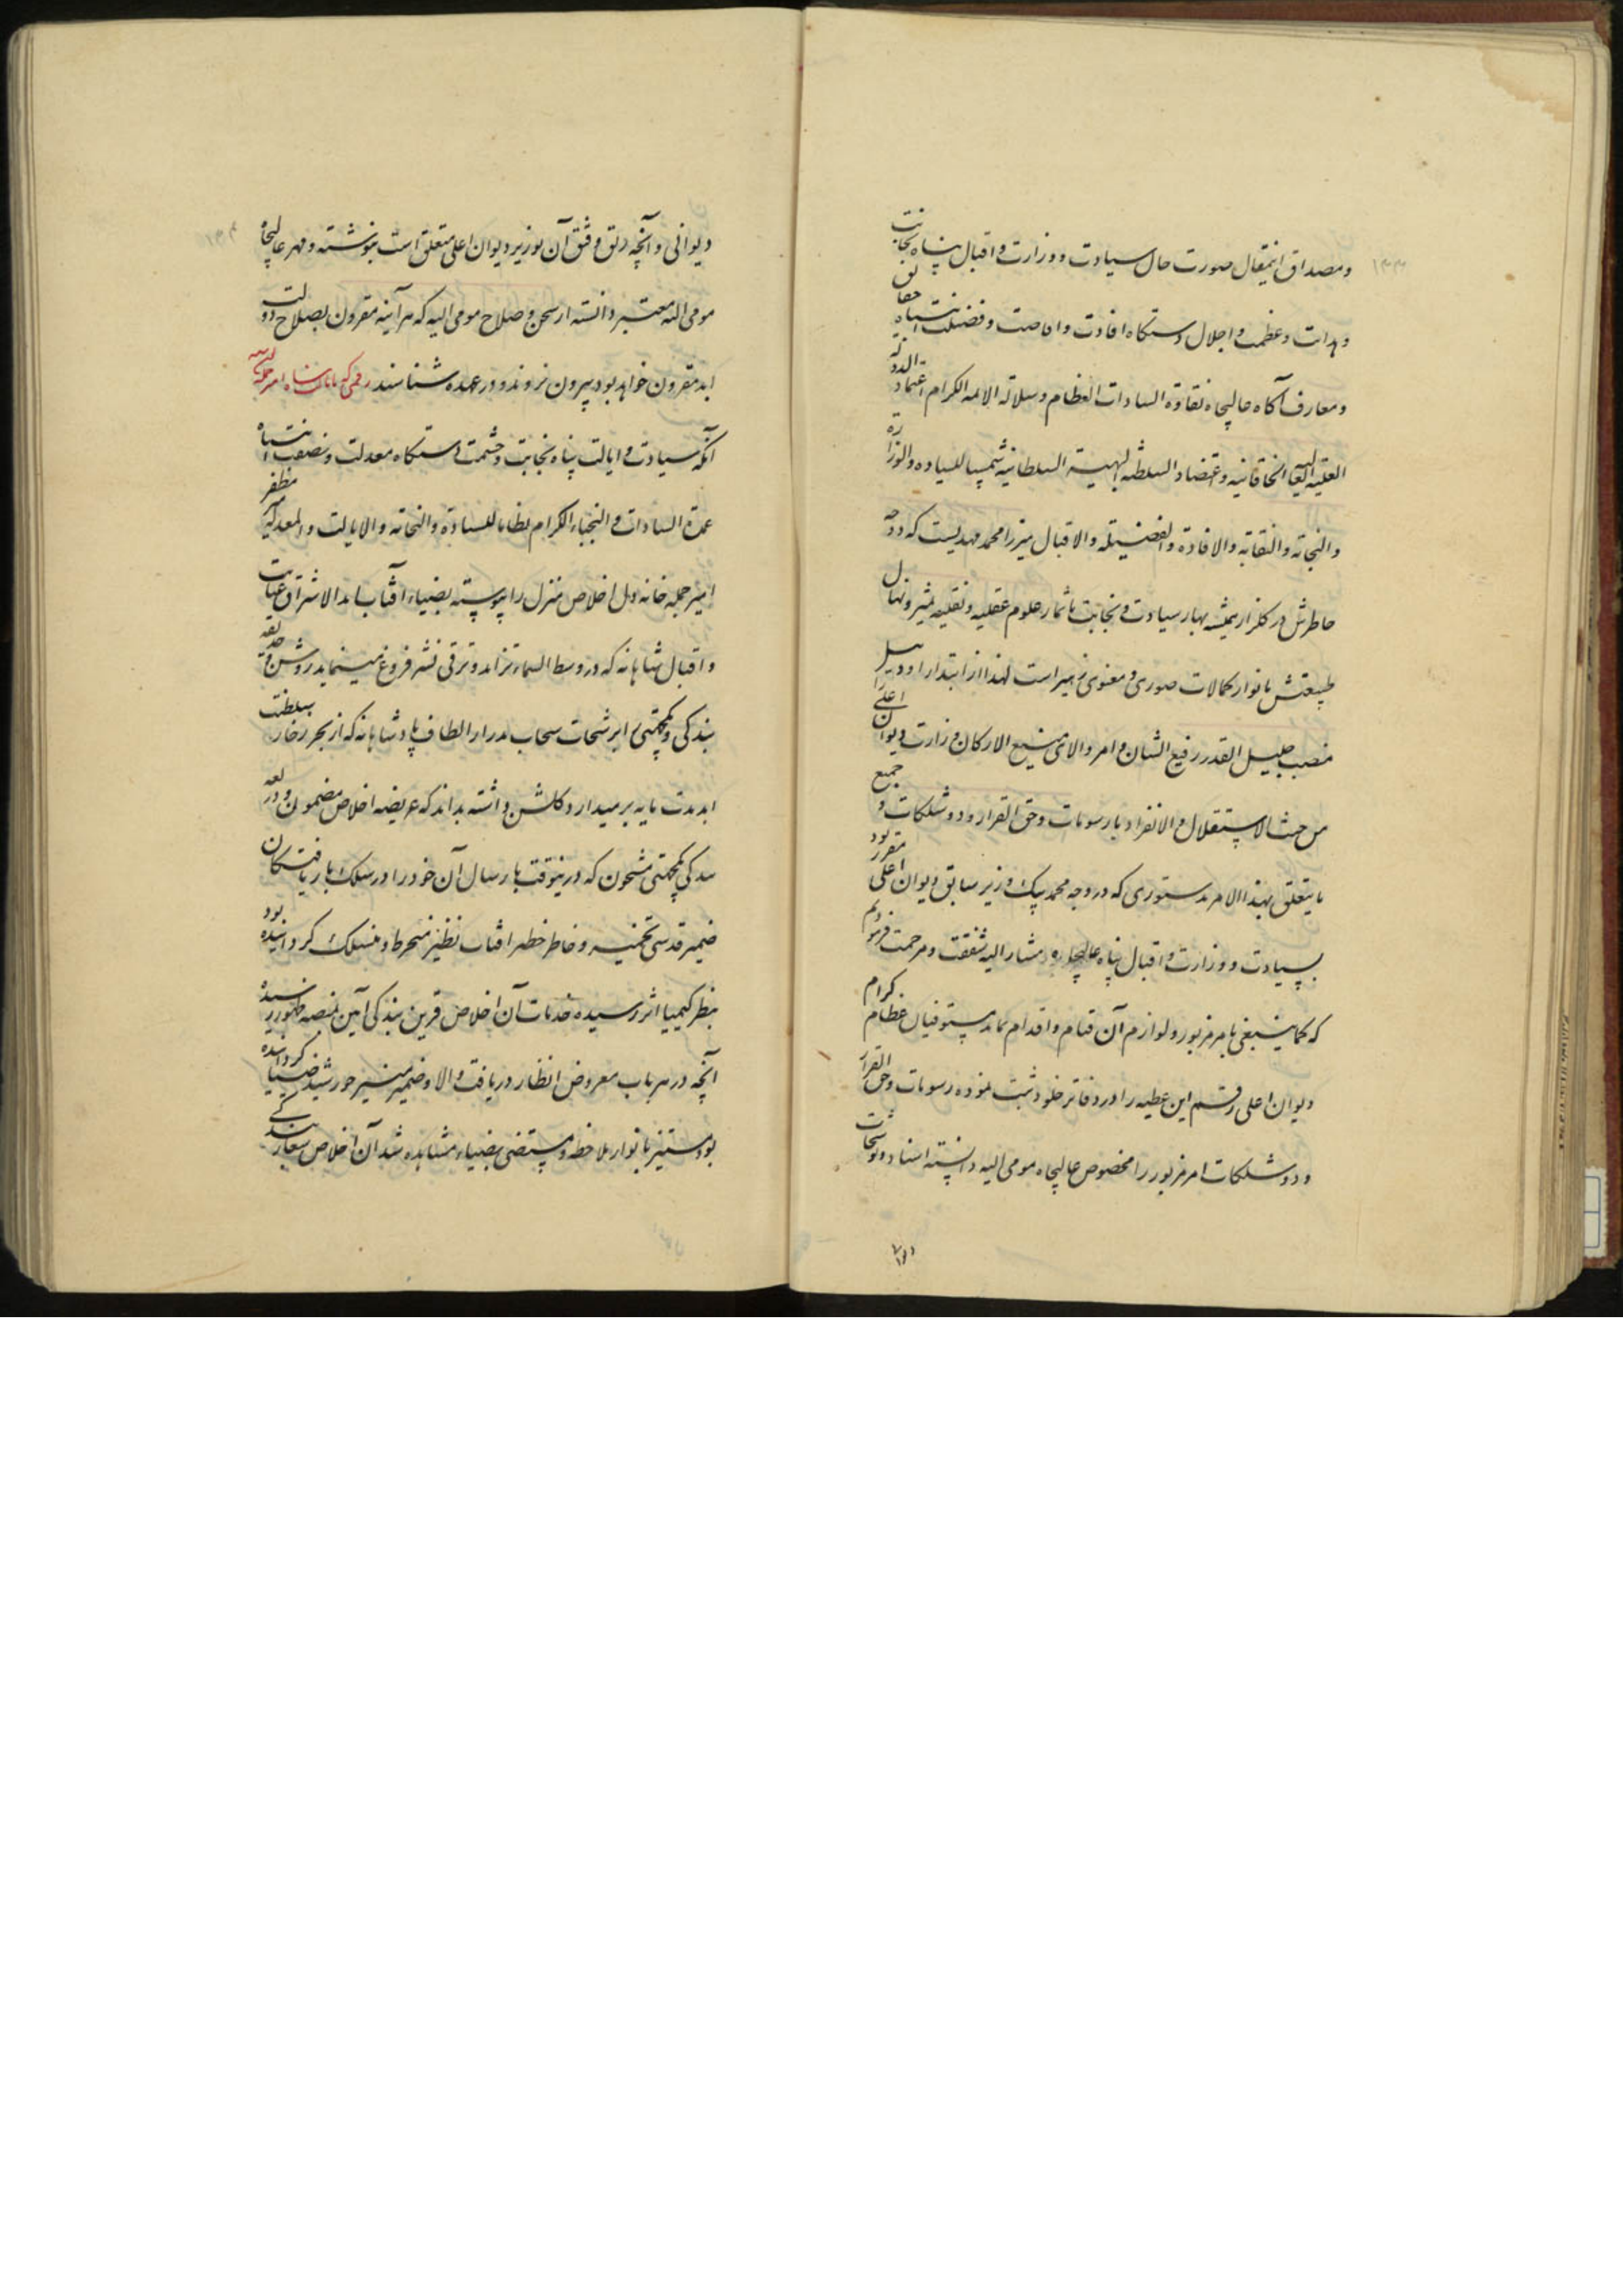 ومصداق اینمقال صورت حال سیادت و وزارت و اقبال پناه نجابت
و عظمت و اجلال دستگاه افادت و افاضت و فضیلت انتباه حقایق
ومعارف آگاه عالیجاه نقاوة السادات العظام وسلالة الائمه الکرام اعتماد الدولة
العلیة العالیة الخاقانیه و اعتضاد السلطنه البهیة السلطانیه شمسا للسیاده والوزارة
و النجابه و النقابه والافادة و الفضیله والاقبال میرزا محمد مهدیست که دوحه
خاطرش در گلزار همیشه بهار سیادت و نجابت باثمار علوم عقلیه و نقلیه مثمر ونهال
طبیعتش بانوار کمالات صوری و معنوی زهیر است لهذا از ابتداء اودئیل
منصب جلیل القدر رفیع الشان و امر والای منیع الارکان وزارت دیوان اعلی را
من حیث الاستقلال و الانفراد بارسومات وحق القرار و دوشلکات و جمیع
ما یتعلق بهذا الامر بدستوری که در وجه محمد بیک وزیر سابق دیوان اعلی مقرر بود
بسیادت و وزارت و اقبال پناه عالیجاه مشار الیه شفقت و مرحمت فرمودیم
که کما ینبغی بامر مزبور و لوازم آن قیام و اقدام نماید مستوفیان عظام کرام
دیوان اعلی رقم این عطیه را در دفاتر خلود ثبت نموده رسومات وحق القرار
و دوشلکات امر مزبور را مخصوص عالیجاه مومی الیه دانسته اسناد و توشیحات
دیوا
دیوانی و آنچه رتق و فتق آن بوزیر دیوان اعلی متعلق است بنوشته و مهر عالیجاه
مومی الیه معتبر دانسته از سخن و صلاح مومی الیه که هر آینه مقرون بصلاح دولت
ابد مقرون خواهد بود بیرون نروند و در عهده شناسند رقمی که
آنکه سیادت و ایالت پناه نجابت و حشمت دستگاه معدلت و نصفت انتباه
عمدة السادات و النجباء الکرام نظاما للسیادة والنجابه والایالت والمعدلة مظفر
امیر جمله خانه دل اخلاص منزل را پیوسته بضیاء آفتاب ابد الاشراق عنایت
و اقبال شاهانه که در وسط السماء تزاید و ترقی نشر فروغ مینماید روشن و حدیقه
بندگی و یکجهتی از رشحات سحاب مدرار الطاف پادشاهانه که از بحر زخار سلطنت
ابد مدت مایه برمیدارد گلشن داشته بداند که عریضه اخلاص مضمون و
بندگی یکجهتی مشحون که درینوقت بارسال آن خود را در سلک باریافتگان
ضمیر قدسی تخمیر و خاطر خطیر آفتاب نظیر منخرط و منسلک گردانیده بود
بنظر کیمیا اثر رسیده خدمات آن اخلاص قرین بندگی آیین بمنصه ظهور رسیده
آنچه در هر باب معروض انظار دریافت والا و ضمیر منیر خورشید ضیا گردانیده
بود مستنیر بانوار ملاحظه و مستضی بضیاء مشاهده شد آن اخلاص شعار بندگی